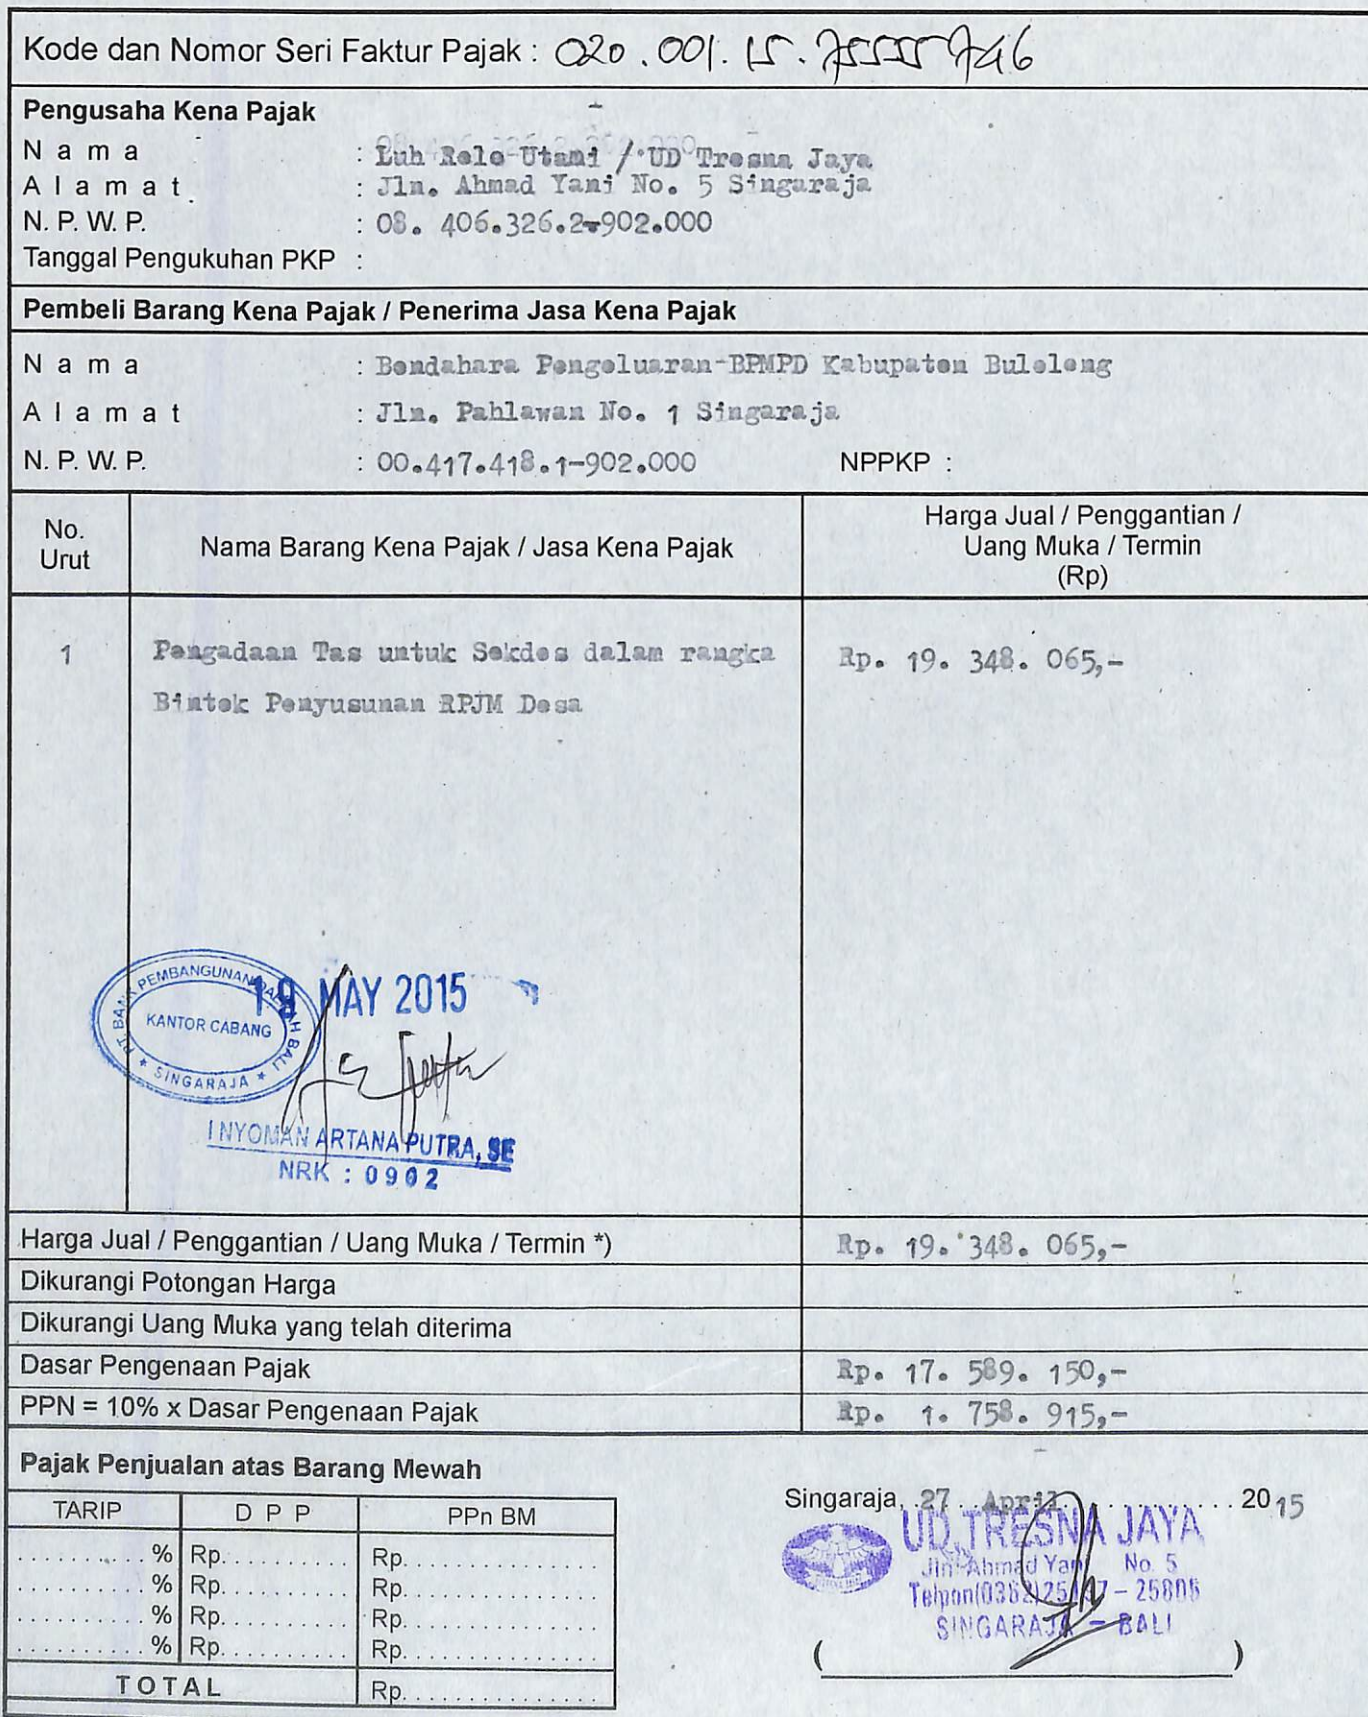 Kode dan Nomor Seri Faktur Pajak : 020.001.15.75555746
Pengusaha Kena Pajak
N a m a : Luh Relo Utami / UD Tresna Jaya
A l a m a t : Jln. Ahmad Yani No. 5 Singaraja
N. P. W. P. : 08. 406.326.2-902.000
Tanggal Pengukuhan PKP :
Pembeli Barang Kena Pajak / Penerima Jasa Kena Pajak
N a m a : Bendahara Pengeluaran-BPMPD Kabupaten Buleleng
A l a m a t : Jln. Pahlawan No. 1 Singaraja
N. P. W. P. : 00.417.418.1-902.000 NPPKP :
No. Urut
Nama Barang Kena Pajak / Jasa Kena Pajak
Harga Jual / Penggantian /
Uang Muka / Termin
(Rp)
1 Pengadaan Tas untuk Sekdes dalam rangka Rp. 19. 348. 065,-
Bintek Penyusunan RPJM Desa
PT. BANK PEMBANGUNAN DAERAH BALI
KANTOR CABANG
* SINGARAJA *
19 MAY 2015
I NYOMAN ARTANA PUTRA, SE
NRK : 0902
Harga Jual / Penggantian / Uang Muka / Termin *) Rp. 19. 348. 065,-
Dikurangi Potongan Harga
Dikurangi Uang Muka yang telah diterima
Dasar Pengenaan Pajak Rp. 17. 589. 150,-
PPN = 10% x Dasar Pengenaan Pajak Rp. 1. 758. 915,-
Pajak Penjualan atas Barang Mewah
TARIP D P P PPn BM
.......... % Rp.......... Rp..............
.......... % Rp.......... Rp..............
.......... % Rp.......... Rp..............
.......... % Rp.......... Rp..............
TOTAL Rp..............
Singaraja, 27 April 2015
UD. TRESNA JAYA
Jln. Ahmad Yani No. 5
SINGARAJA - BALI
( )